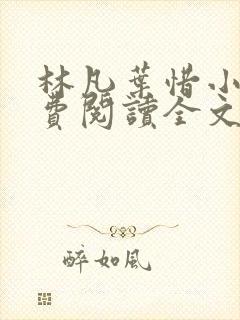 林凡葉惜小
費閱讀全文
醉如風